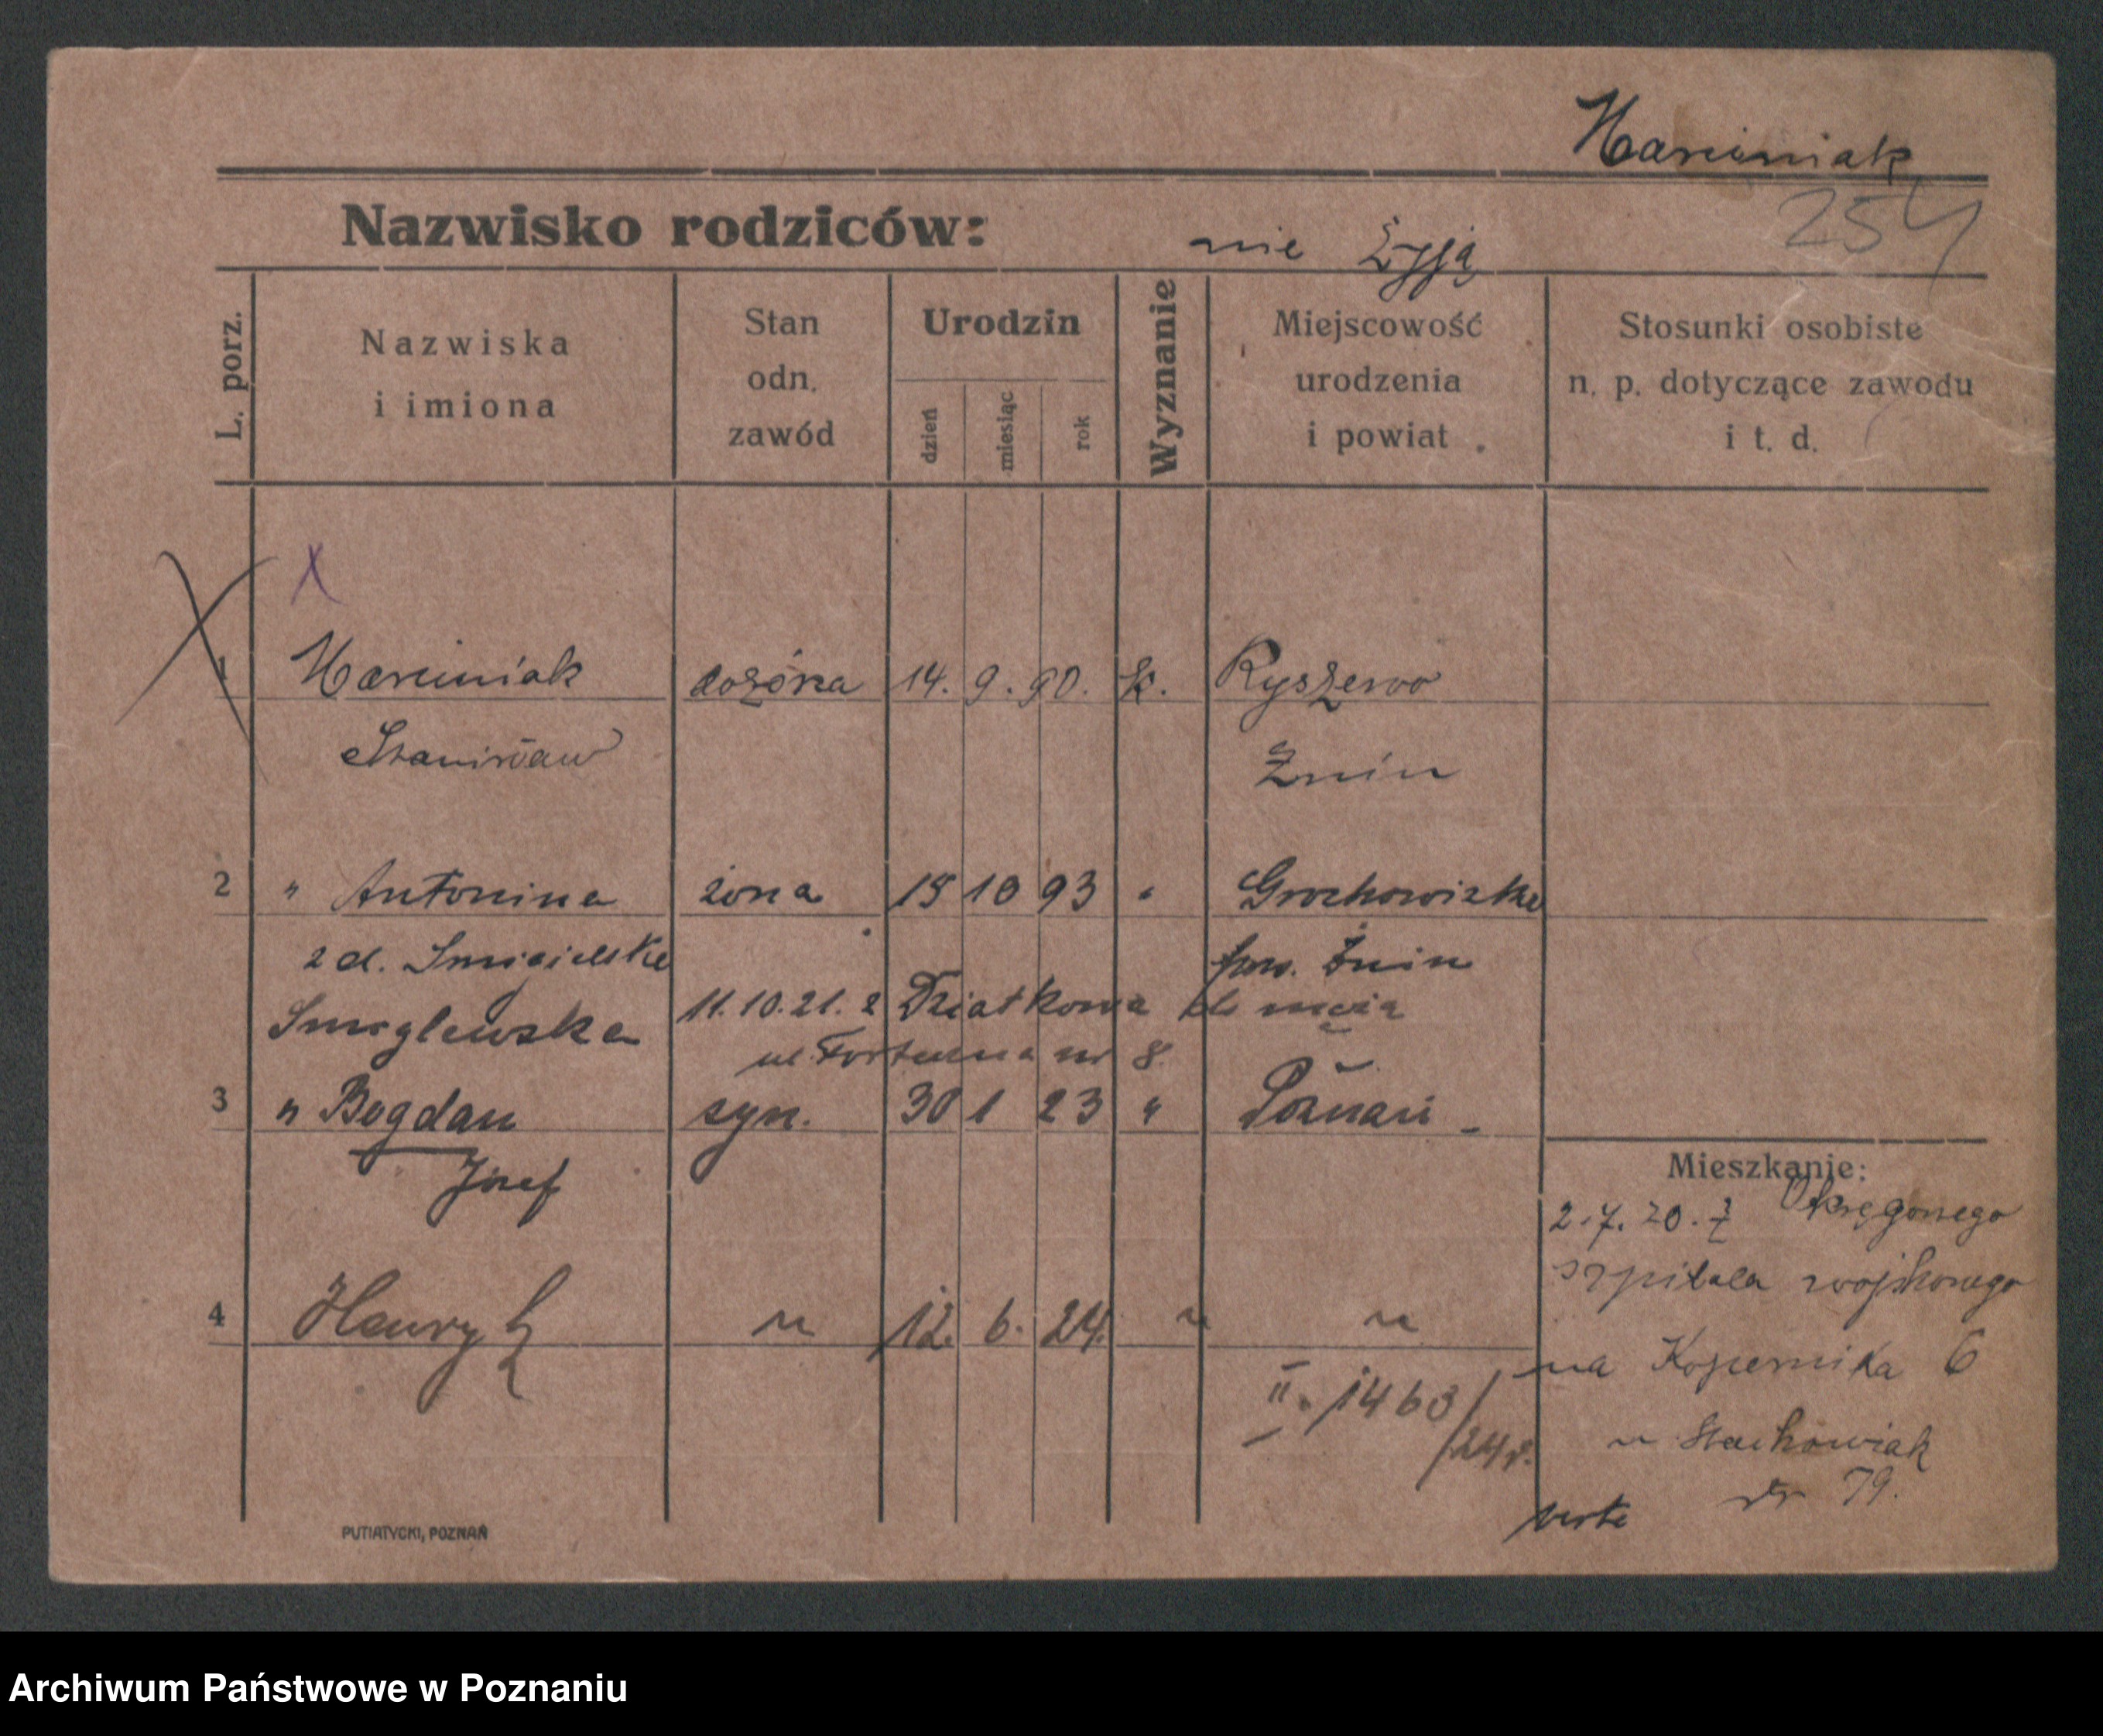 Marciniak
254
Nazwisko rodziców: nie żyją
L. porz.
Nazwiska
i imiona
Stan
odn.
zawód
Urodzin
dzień
miesiąc
rok
Wyznanie
Miejscowość
urodzenia
i powiat
Stosunki osobiste
n. p. dotyczące zawodu
i t. d.
X
1 Marciniak dozórca 14. 9. 90. k. Ryszewo
Stanisław Żnin
2 " Antonina żona 15 10 93 " Grochowiska
z d. Smigielska pow. Żnin
11.10.21. z Dziatkowa do męża
Smoglewska
ul. nr 8.
3 " Bogdan syn. 30 1 23 " Poznań
Józef
4 Henryk " 12. 6. 24. " "
II. 1463/24r.
Mieszkanie:
2.7.20. z Okręgowego
szpitala wojskowego
na Kopernika 6
u Stachowiak
79.
verte
PUTIATYCKI, POZNAŃ
Archiwum Państwowe w Poznaniu